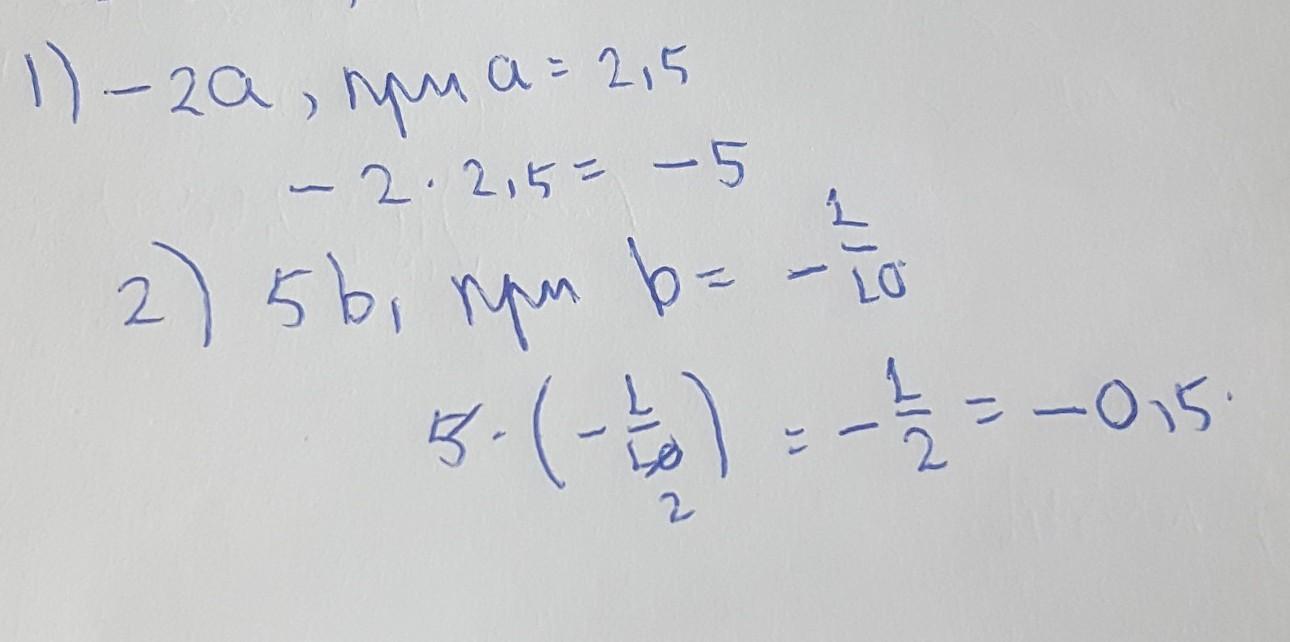 1) -2a, при a = 2,5
-2 · 2,5 = -5
2) 5b, при b = -1/10
5 · (-1/10) = -1/2 = -0,5.
2